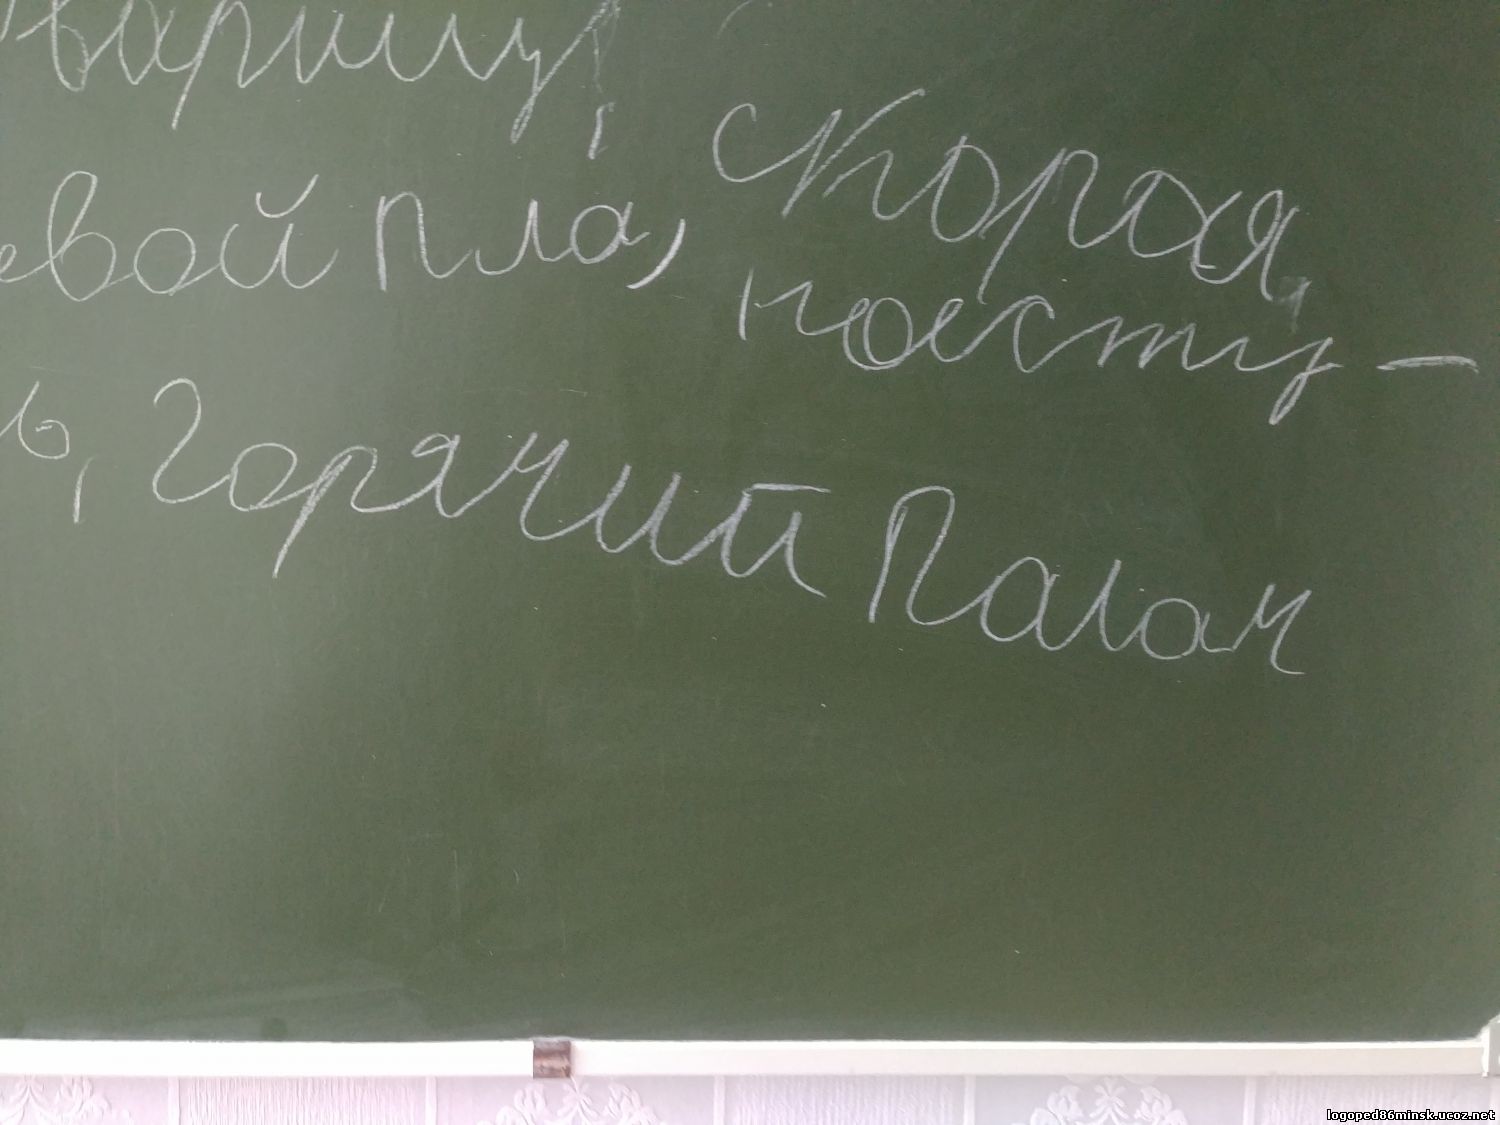 варищу,
скорая,
евой пла,
поесту-
ь, горячий Палач
logoped86minsk.ucoz.net